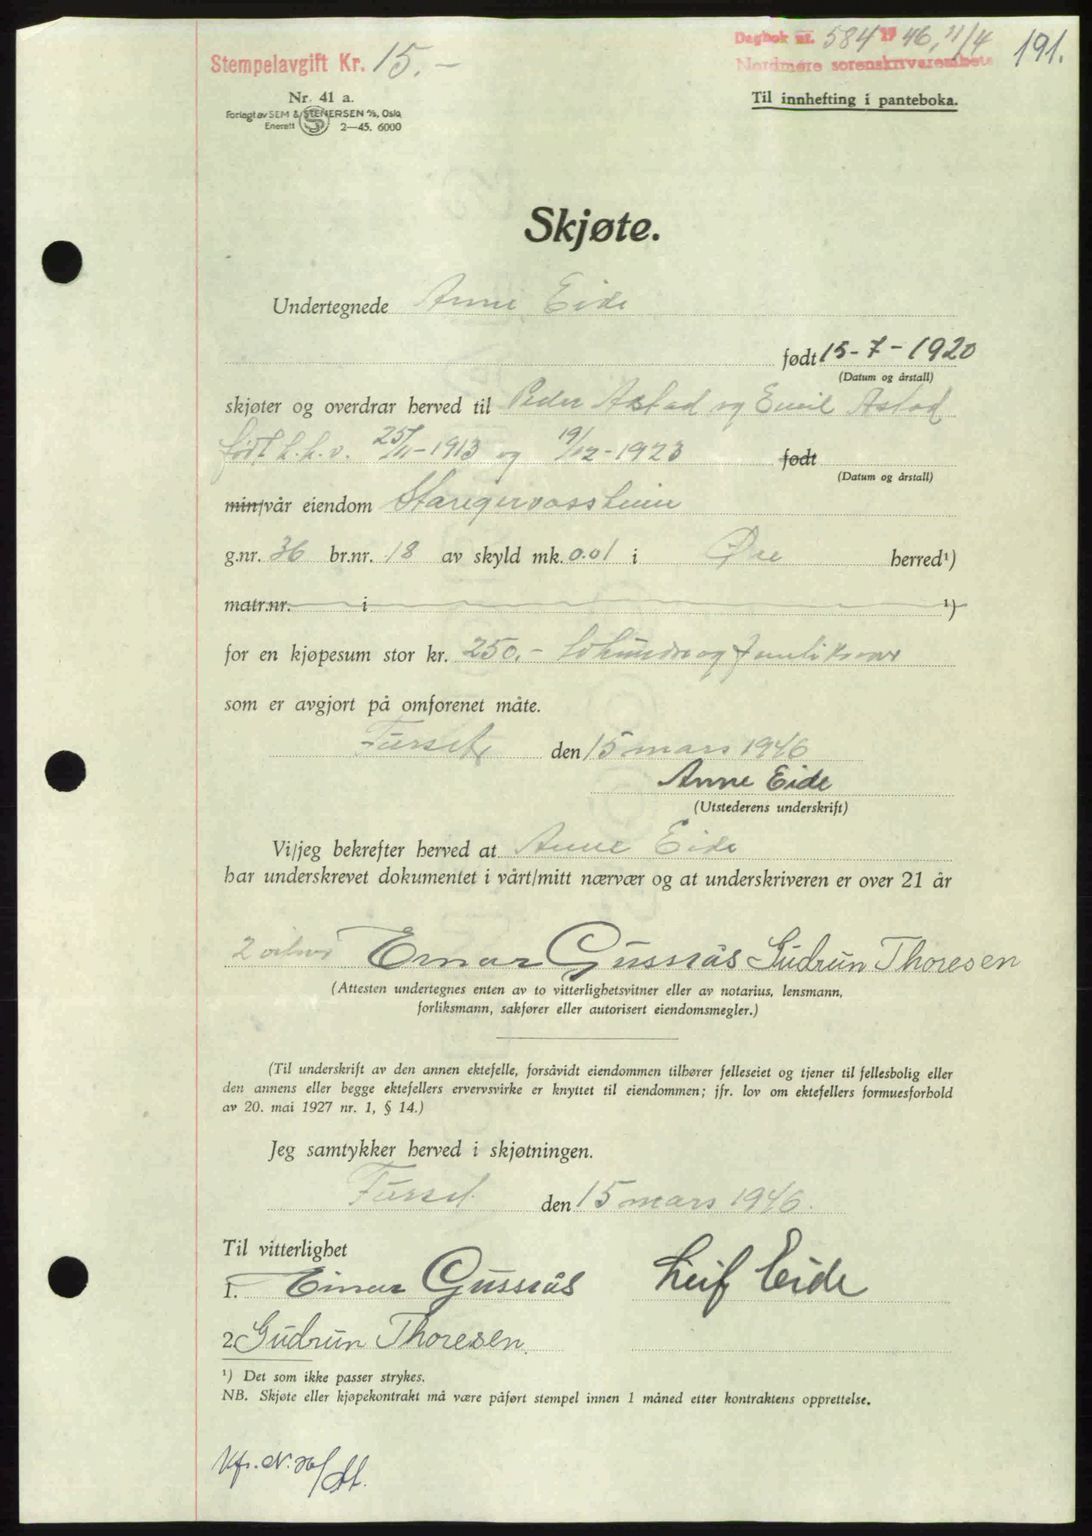 Stempelavgift Kr. 15.-
Dagbok nr. 584 1946, 11/4
Nordmøre sorenskriverembete
191.
Nr. 41 a.
Forlagt av SEM & STENERSEN A/S, Oslo
Enerett 2—45. 6000
Til innhefting i panteboka.
Skjøte.
Undertegnede Anne Eide
født 15-7-1920
(Datum og årstall)
skjøter og overdrar herved til Peder Astad og Emil Astad
født h.h.v. 25/11-1913 og 19/12-1923 født
(Datum og årstall)
min/vår eiendom
g.nr. 36 br.nr. 18 av skyld mk. 0.01 i Øre herred¹)
matr.nr. i ¹)
for en kjøpesum stor kr. 250,- tohundreogfemtikroner
som er avgjort på omforenet måte.
Furset den 15 mars 1946
Anne Eide
(Utstederens underskrift)
Vi/jeg bekrefter herved at Anne Eide
har underskrevet dokumentet i vårt/mitt nærvær og at underskriveren er over 21 år
Einar Gussiås Gudrun Thoresen
(Attesten undertegnes enten av to vitterlighetsvitner eller av notarius, lensmann,
forliksmann, sakfører eller autorisert eiendomsmegler.)
(Til underskrift av den annen ektefelle, forsåvidt eiendommen tilhører felleseiet og tjener til fellesbolig eller
den annens eller begge ektefellers ervervsvirke er knyttet til eiendommen; jfr. lov om ektefellers formuesforhold
av 20. mai 1927 nr. 1, § 14.)
Jeg samtykker herved i skjøtningen.
Furset den 15 mars 1946.
Til vitterlighet
1. Einar Gussiås Leif Eide
2. Gudrun Thoresen
¹) Det som ikke passer strykes.
NB. Skjøte eller kjøpekontrakt må være påført stempel innen 1 måned etter kontraktens opprettelse.